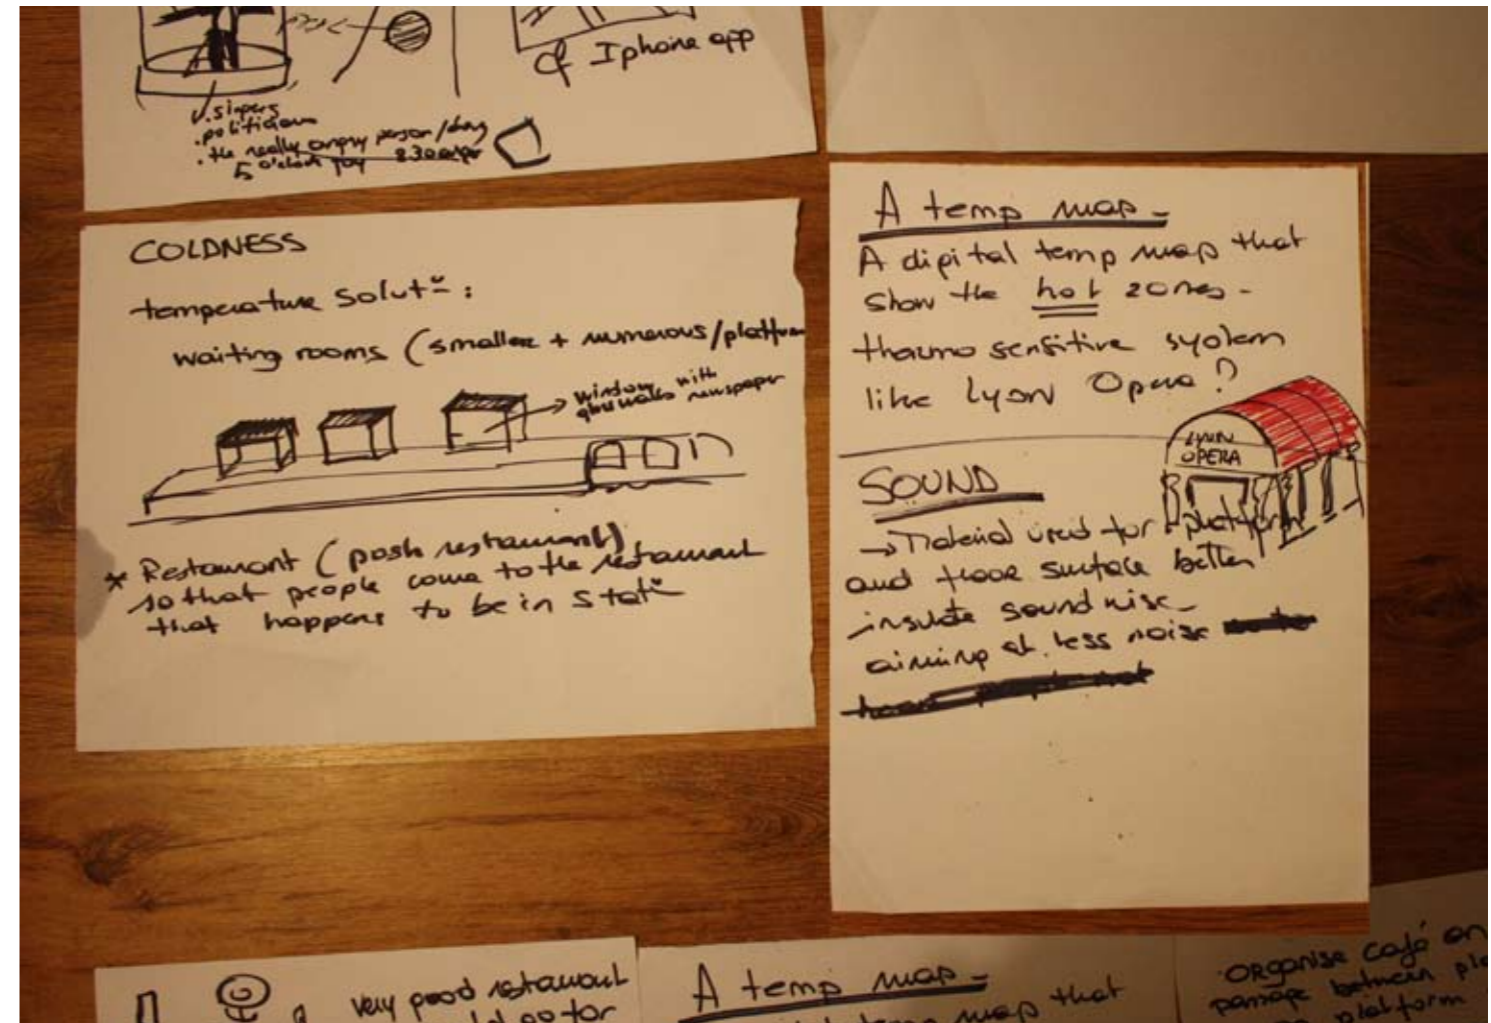 of Iphone app
.singers
.politician
. the really angry person / day
5 o'clock
COLDNESS
temperature solut°:
waiting rooms (smaller + numerous/platform
window with
glass walls newspaper
* Restaurant (posh restaurant)
so that people come to the restaurant
that happens to be in stat°
A temp map -
A digital temp map that
show the hot zones -
thermo sensitive system
like Lyon Opera?
LYON
OPERA
SOUND
→ Material used for platform
and floor surface better
insulate sound wise -
aiming at less noise
very good restaurant
go for
A temp map -
temp map that
ORGANISE café on
passage between pla
platform